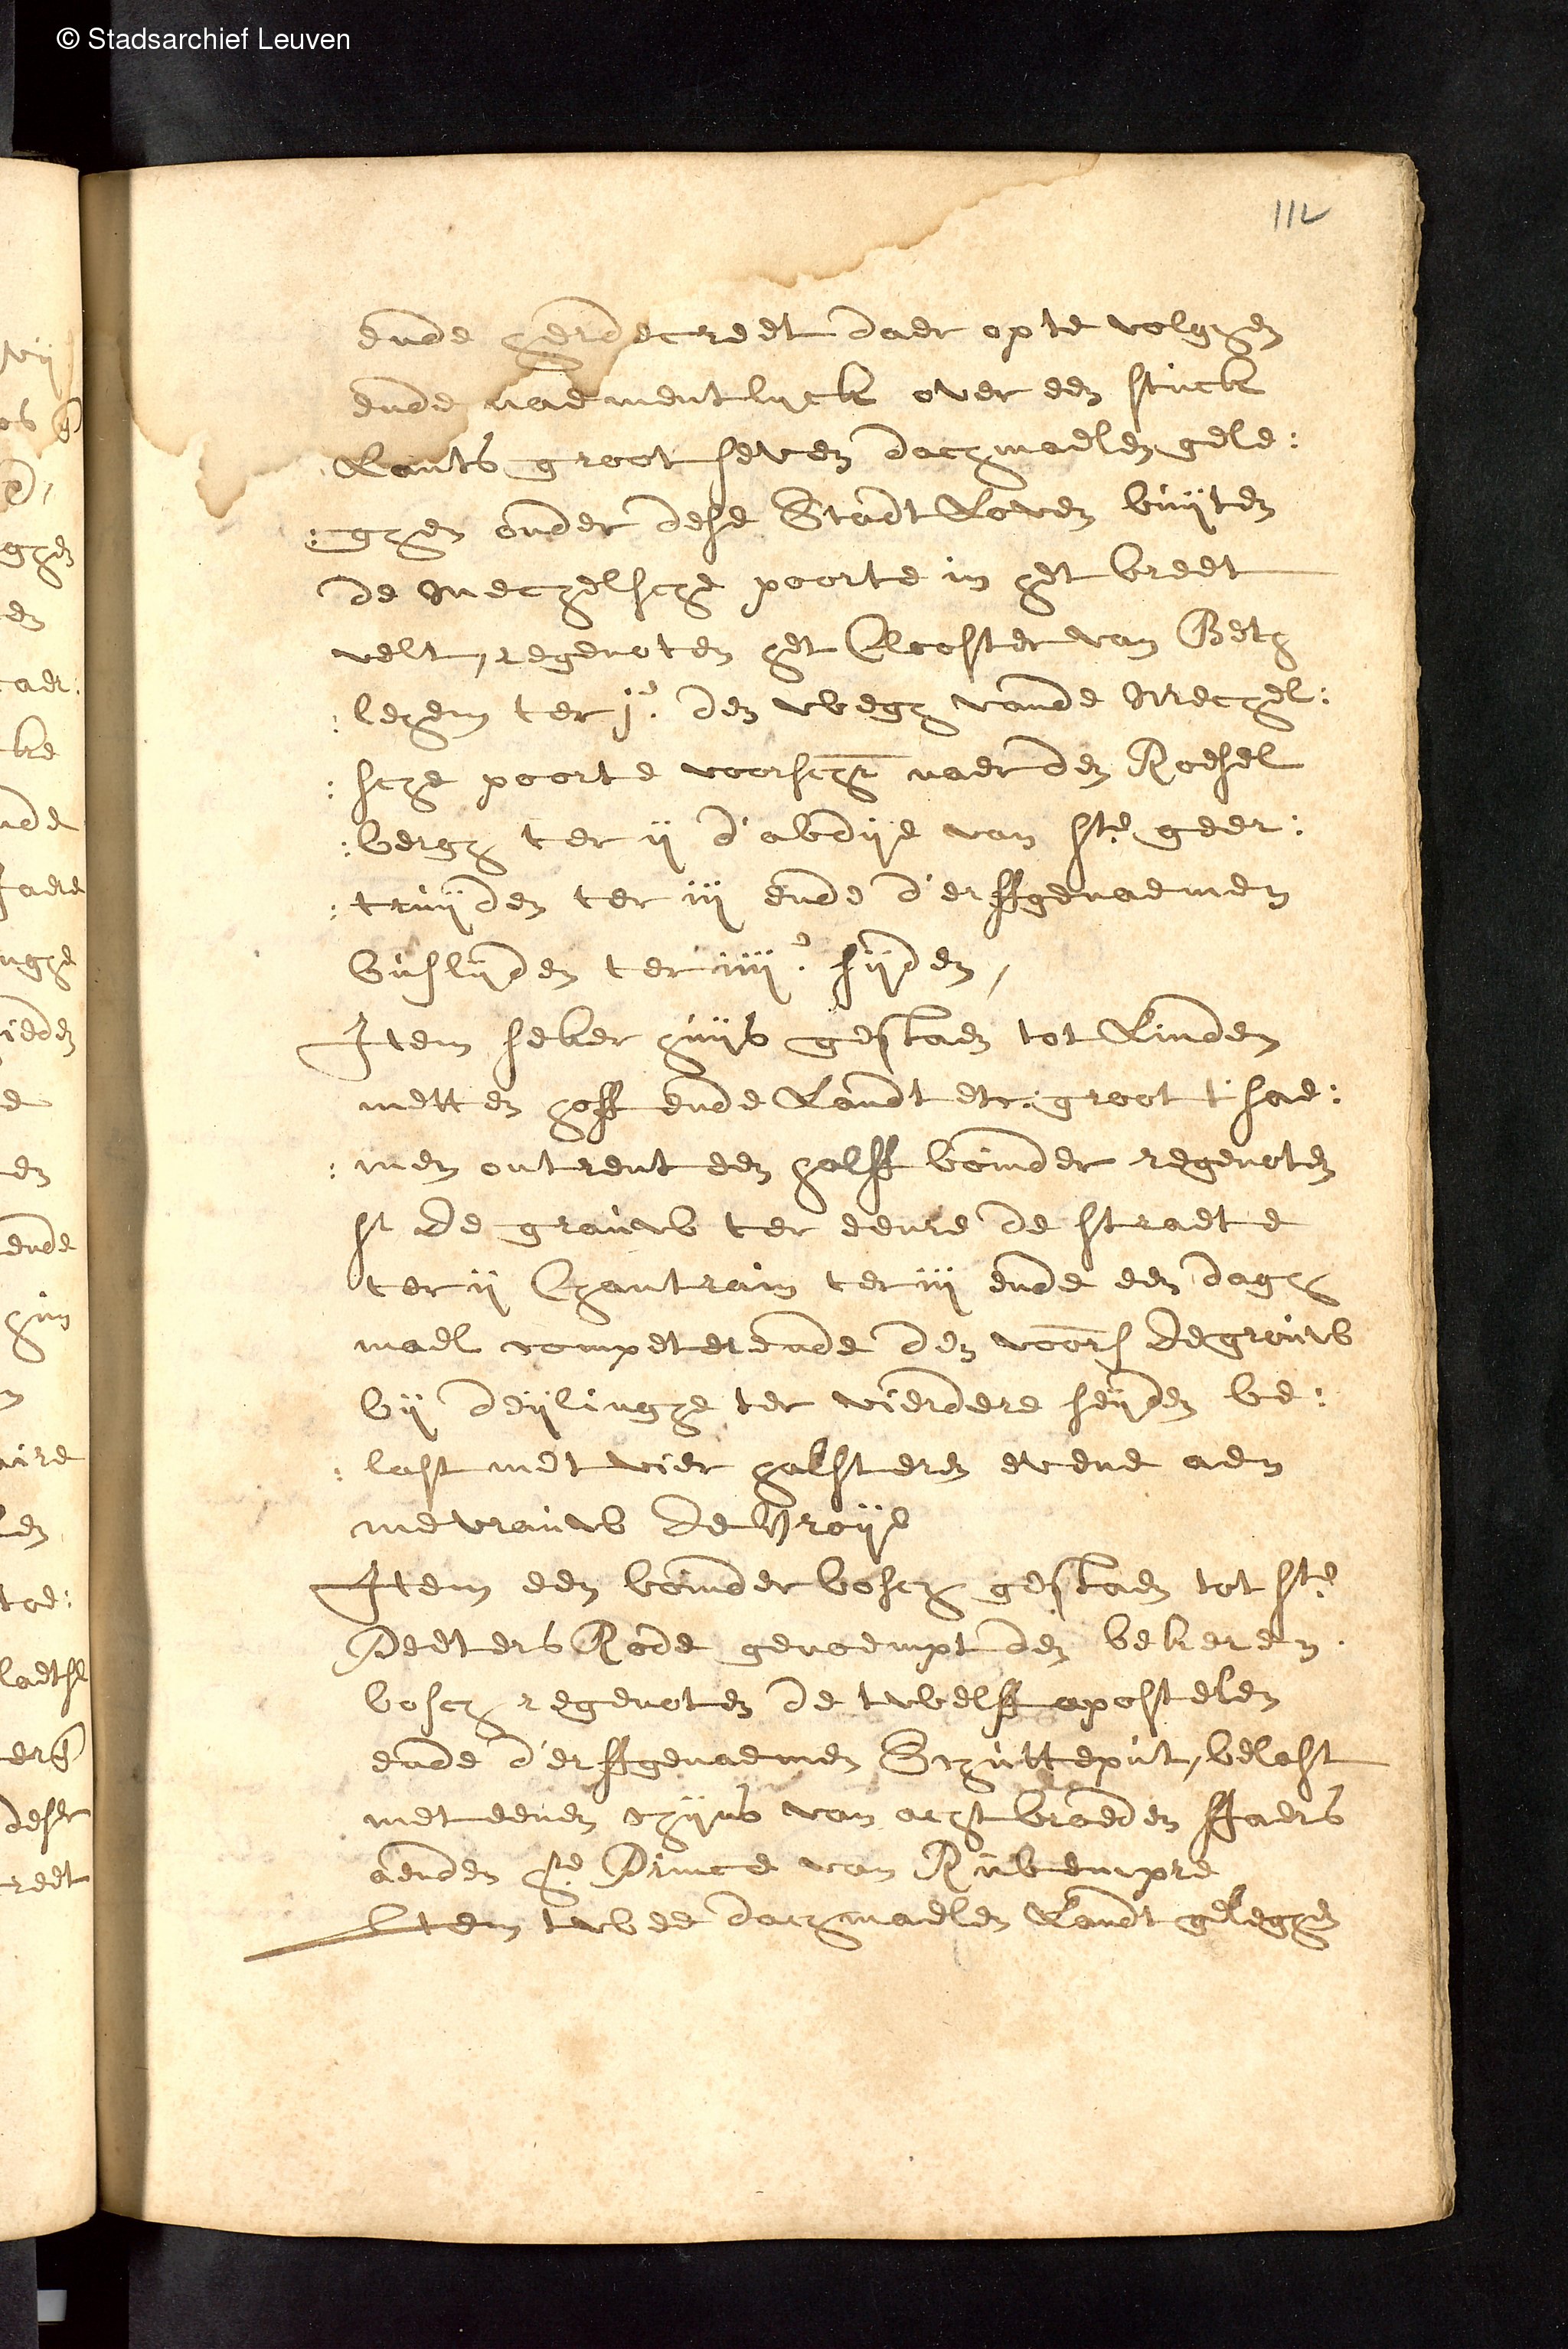 © Stadsarchief Leuven
112
ende herdecreet daer op te volghen
ende naementlyck over een stuck
Lants groot seven dachmaelen gele:
:ghen onder dese Stadt Loven buijten
de Mechelsche poorte in het breet
velt, regenoten het Clooster van Beth
:lehem ter j.e den wegh vande Mechel:
:sche poorte voorschr naer den Roesel
:bergh ter ij d'abdije van ste geer:
:truijden ter iij ende d'erffgenaemen
buslijden ter iiij.e sijden,
Item seker huijs gestaen tot Linden
metten hoff ende Landt etc. groot tsae:
:men ontrent een halff boinder regenoten
sr De grauw ter eenre de straete
ter ij Chantrain ter iij ende een dagh
mael competerende den voors De grauw
bij deijlinghe ter vierdere seijden be:
:last met vier halsteren evene aen
mevrauw De Broije
Item een boinder bosch gestaen tot ste
Peeters Rode genoempt den bekeren
bosch regenoten de twelff apostelen
ende d'erffgenaemen Schutteput, belast
met eenen chijns van acht braeden Jaers
aenden hre Prince van Rubempre
Item twee dachmaelen Landt geleghen